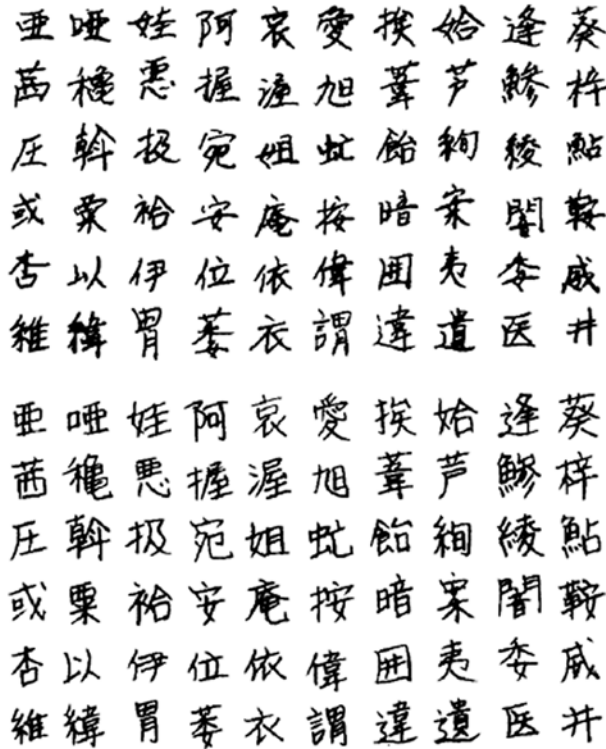 亜 唖 娃 阿 哀 愛 挨 姶 逢 葵
茜 穐 悪 握 渥 旭 葦 芦 鯵 梓
圧 斡 扱 宛 姐 虻 飴 絢 綾 鮎
或 粟 袷 安 庵 按 暗 案 闇 鞍
杏 以 伊 位 依 偉 囲 夷 委 威
維 緯 胃 萎 衣 謂 違 遺 医 井
亜 唖 娃 阿 哀 愛 挨 姶 逢 葵
茜 穐 悪 握 渥 旭 葦 芦 鯵 梓
圧 斡 扱 宛 姐 虻 飴 絢 綾 鮎
或 粟 袷 安 庵 按 暗 案 闇 鞍
杏 以 伊 位 依 偉 囲 夷 委 威
維 緯 胃 萎 衣 謂 違 遺 医 井